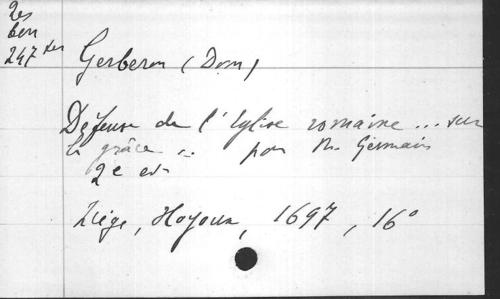 Res
ben
247 ter
Gerberon (Dom)
Défense de l'Eglise romaine... sur
la grâce... par M. Germain
2e ed.
Liège, Hoyoux, 1697, 16°